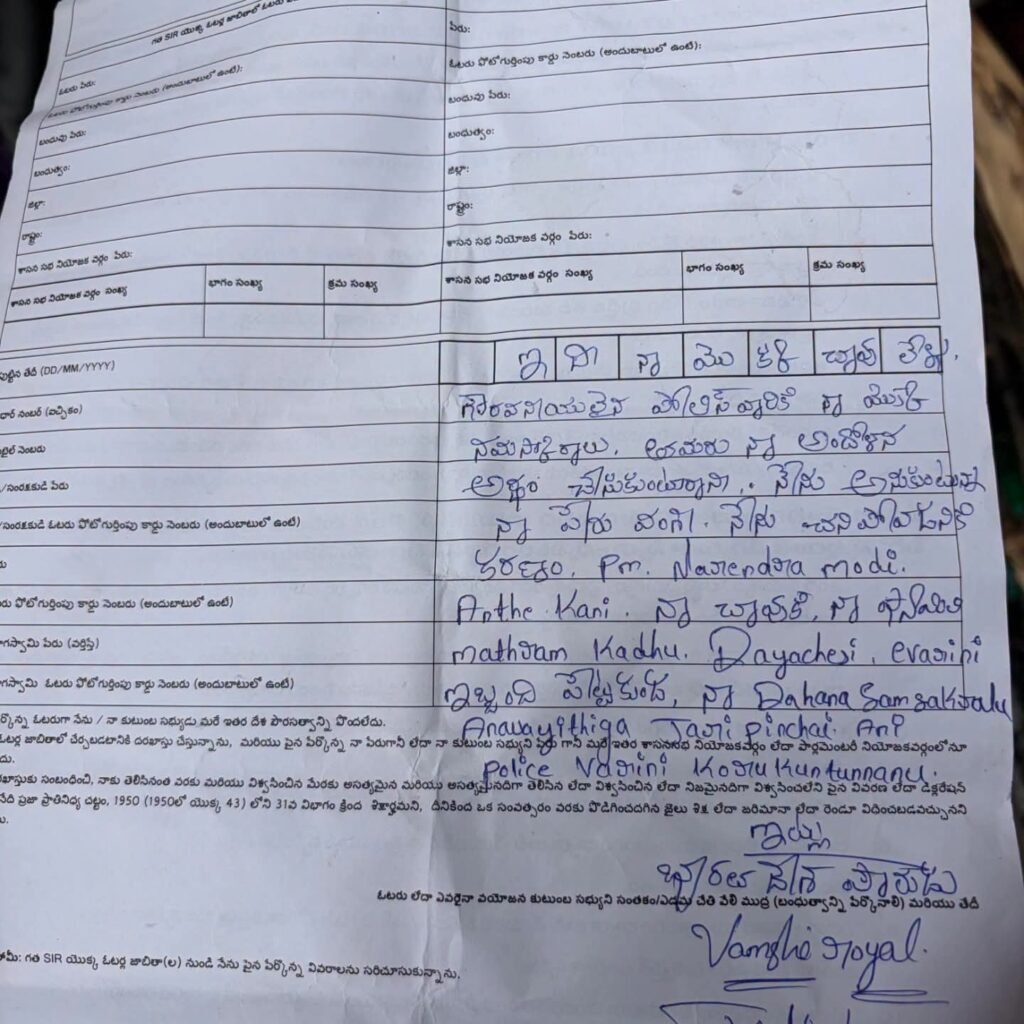 గత SIR యొక్క ఓటర్ల జాబితాలో ఓటరు
పేరు:
ఓటరు పేరు:
ఓటరు ఫోటోగుర్తింపు కార్డు నెంబరు (అందుబాటులో ఉంటే):
ఓటరు ఫోటోగుర్తింపు కార్డు నెంబరు (అందుబాటులో ఉంటే):
బంధువు పేరు:
బంధువు పేరు:
బంధుత్వం:
బంధుత్వం:
జిల్లా:
జిల్లా:
రాష్ట్రం:
రాష్ట్రం:
శాసన సభ నియోజక వర్గం పేరు:
శాసన సభ నియోజక వర్గం పేరు:
శాసన సభ నియోజక వర్గం సంఖ్య భాగం సంఖ్య క్రమ సంఖ్య
శాసన సభ నియోజక వర్గం సంఖ్య భాగం సంఖ్య క్రమ సంఖ్య
పుట్టిన తేదీ (DD/MM/YYYY) ఇ ది నా మొ
ధార్ నంబర్ (ఐచ్ఛికం) గౌరవనీయులైన పోలీస్ వారికి నా యొక్క
బైల్ నెంబరు నమస్కారాలు. నా
/సంరక్షకుడి పేరు అర్థం చేసుకుంటారాని.. నేను అనుకుంటున్న
/సంరక్షకుడి ఓటరు ఫోటోగుర్తింపు కార్డు నెంబరు (అందుబాటులో ఉంటే) నా పేరు వంశీ. నేను చనిపోవడనికి
రు కరణం. Pm. Narendra modi.
రు ఫోటోగుర్తింపు కార్డు నెంబరు (అందుబాటులో ఉంటే) Anthe. Kani. నా చావుకి, నా
గస్వామి పేరు (వర్తిస్తే) mathram Kadhu. Dayachesi, evarini
గస్వామి ఓటరు ఫోటోగుర్తింపు కార్డు నెంబరు (అందుబాటులో ఉంటే) ఇబ్బంది పెట్టకుండ, నా Dahana Samsakaralu
ర్కొన్న ఓటరుగా నేను / నా కుటుంబ సభ్యుడు మరే ఇతర దేశ పౌరసత్వాన్ని పొందలేదు.
Anavayithiga Jaripinchai. Ani
ఓటర్ల జాబితాలో చేర్చబడటానికి దరఖాస్తు చేస్తున్నాను, మరియు పైన పేర్కొన్న నా పేరుగానీ లేదా నా కుటుంబ సభ్యుని పేరు గానీ మరే ఇతర శాసనసభ నియోజకవర్గం లేదా పార్లమెంటరీ నియోజకవర్గంలోనూ
దు.
police Varini Korukuntunnanu.
ఖాస్తుకు సంబంధించి, నాకు తెలిసినంత వరకు మరియు విశ్వసించిన మేరకు అసత్యమైన మరియు అసత్యమైనదిగా తెలిసిన లేదా విశ్వసించిన లేదా నిజమైనదిగా విశ్వసించలేని పైన వివరణ లేదా డిక్లరేషన్
నేది ప్రజా ప్రాతినిధ్య చట్టం, 1950 (1950లో యొక్క 43) లోని 31వ విభాగం క్రింద శిక్షార్హమని, దీనికింద ఒక సంవత్సరం వరకు పొడిగించదగిన జైలు శిక్ష లేదా జరిమానా లేదా రెండూ విధించబడవచ్చునని
ఇట్లు
భారత దేశ పౌరుడు
ఓటరు లేదా ఎవరైనా వయోజన కుటుంబ సభ్యుని సంతకం/ఎడమ చేతి వేలి ముద్ర (బంధుత్వాన్ని పేర్కొనాలి) మరియు తేదీ
Vamshi royal.
గత SIR యొక్క ఓటర్ల జాబితా(ల) నుండి నేను పైన పేర్కొన్న వివరాలను సరిచూసుకున్నాను.